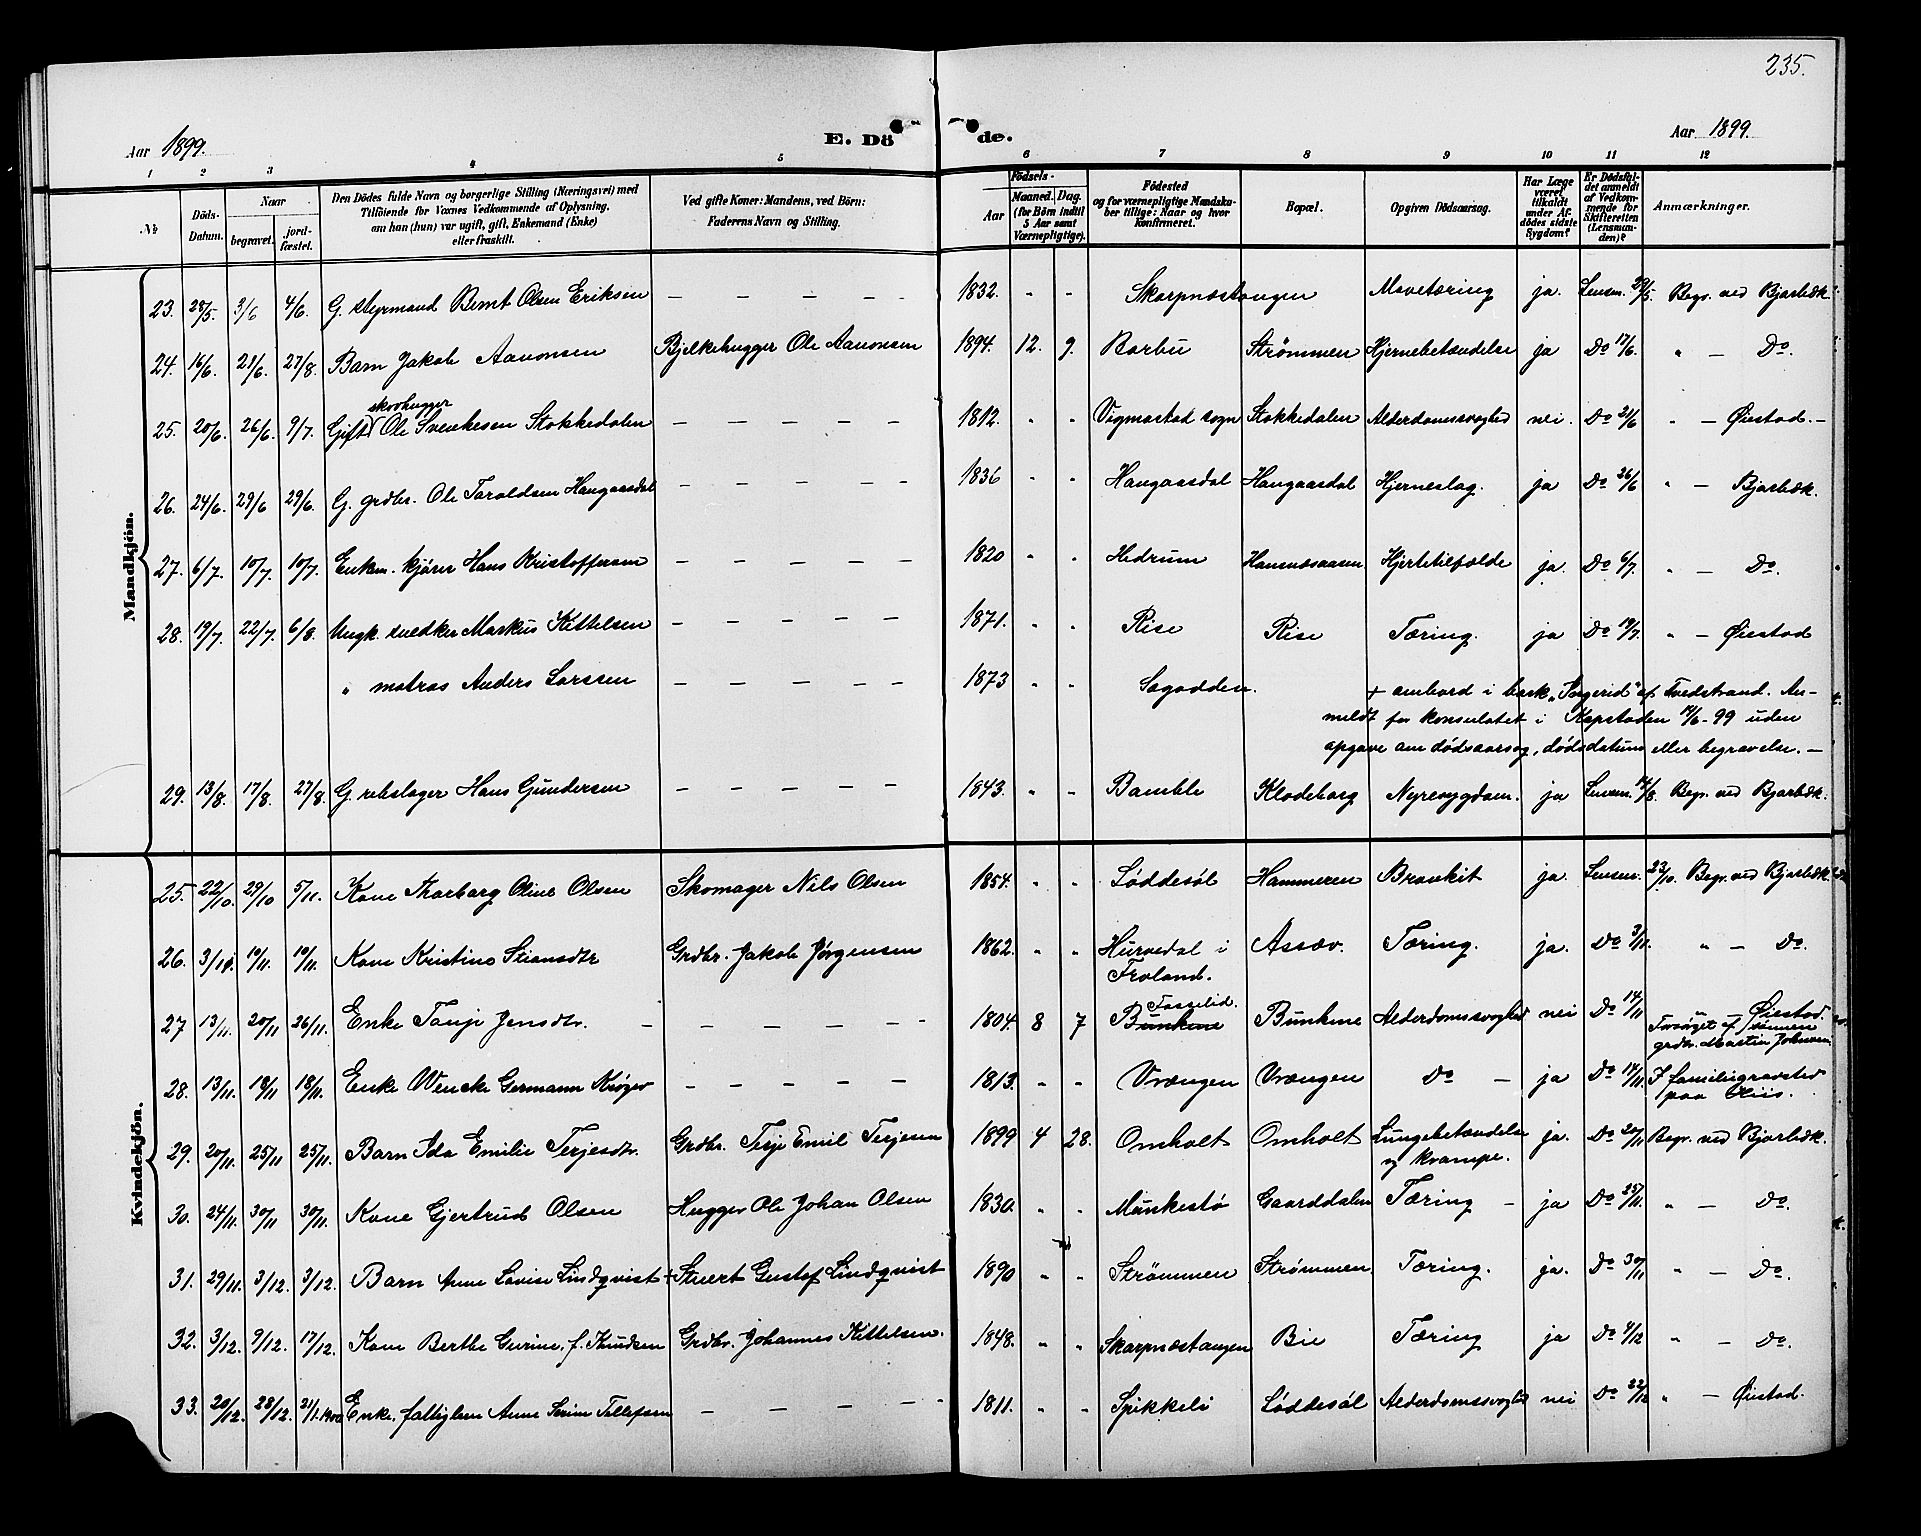 235.
Aar 1899. E. Dö de. Aar 1899.
1 2 3 4 5 6 7 8 9 10 11 12
№ Döds-Datum. Naar begravet. jord-fæstet. Den Dödes fulde Navn og borgerlige Stilling (Næringsvei) med Tilföiende for Voxnes Vedkommende af Oplysning, om han (hun) var ugift, gift, Enkemand (Enke) eller fraskilt. Ved gifte Koner: Mandens, ved Börn: Faderens Navn og Stilling. Födsels- Aar Maaned. Dag. (for Börn indtil 5 Aar samt Værnepligtige). Födested og for værnepligtige Mandskaber tillige: Naar og hvor konfirmeret. Bopæl. Opgiven Dödsaarsag. Har Læge været tilkaldt under Afdödes sidste Sygdom? Er Dödsfaldet anmeldt af Vedkommende for Skifteretten (Lensmanden)? Anmærkninger.
Mandkjön.
23. 28/5. 3/6 4/6. G. styrmand Bernt Olsen Eriksen – – – – 1832. " " Skarpnæstangen Mavetæring ja. Lensm. 29/5. Begr. ved Bjorbæk.
24. 16/6. 21/6. 27/8. Barn Jakob Aanonsen Bjelkehugger Ole Aanonsen 1894. 12. 9. Barbu Strømmen Hjernebetændelse ja Do 17/6. " – Do.
skovhugger
25. 20/6. 26/6. 9/7. Gift Ole Svenkesen Stokkedalen – – – – – 1812. " " Vigmostad sogn Stokkedalen Alderdomssvaghed nei. Do 21/6 " – Øiestad. –
26. 24/6. 29/6 29/6. G. grdbr. Ole Taraldsen Haugaasdal – – – – – 1836 " " Haugaasdal Haugaasdal Hjerneslag. ja Do 26/6 " – Bjorbæk.
27. 6/7. 10/7. 10/7. Enkem. kjører Hans Kristoffersen – – – – – 1820 " " Hedrum Hansnæsaasen Hjertetilfælde ja. Do 6/7. " – Do.
28. 19/7. 22/7. 6/8. Ungk. snedker Markus Kittelsen – – – – – 1871. " " Rise Rise Tæring. ja Do 19/7. " – Øiestad
" matros Anders Larssen – – – – – 1873 " " Sagodden. + ombord i bark "Ingerid" af Tvedstrand. An-
meldt for konsulatet i Kapstaden 14/6-99 uden
opgave om dødsaarsag, dødsdatum eller begravelse. –
29. 13/8. 17/8. 27/8. G. rebslager Hans Gundersen – – – – – 1843. " " Bamble Klodeborg Nyresygdom. ja Lensm. 14/8. Begr. ved Bjorbæk.
Kvindekjön.
25. 22/10. 29/10 5/11. Kone Torborg Oline Olsen Skomager Nils Olsen 1854. " " Løddesøl Hammeren Bronkit ja. Lensm. 23/10. Begr. ved Bjorbæk.
26. 3/11. 10/11. 10/11. Kone Kristine Stiansdtr Grdbr. Jakob Jørgensen 1862. " " Hurvedal i Assæv. Tæring. ja. Do 3/11. " – Do.
Froland.
27 13/11. 20/11 26/11. Enke Tonje Jensdtr. – – – – – 1804. 8 7 Bunkene Tasselid. Bunkene Alderdomssvaghed nei Do 14/11 " – Øiestad.
Forsørget af sønnen
grdbr. Martin Johnsen
28. 13/11. 18/11 18/11. Enke Wencke Germann Krøger – – – – – 1813. " " Vrængen Vrængen Do – ja Do 14/11. I familiegravsted
paa Hiis.
29. 20/11. 25/11 25/11. Barn Ida Emilie Terjesdtr. Grdbr. Terje Emil Terjesen 1899 4 28. Omholt Omholt Lungebetændelse ja. Do 20/11 Begr. ved Bjorbæk.
og krampe.
30. 24/11. 30/11 30/11. Kone Gjertrud Olsen Hugger Ole Johan Olsen 1830. " " Munkestø Gaarddalen Tæring – ja Do 25/11. " – Do.
31. 29/11. 3/12. 3/12. Barn Anne Lovise Lindqvist + Stuert Gustaf Lindqvist 1890 " " Strömmen Strømmen Tæring. ja. Do 30/11 " – Do.
32. 3/12. 9/12. 17/12. Kone Berthe Gurine, f. Knudsen Grdbr. Johannes Kittelsen. 1848. " " Skarpnæstangen Bie Tæring ja Do 4/12 " – Do.
33. 20/12. 28/12. 21/1.1900 Enke, fattiglem Anne Serine Tellefsen – – – – – 1811. " " Spikkeli Løddesøl Alderdomssvaghed nei Do 22/12 " – Øiestad.